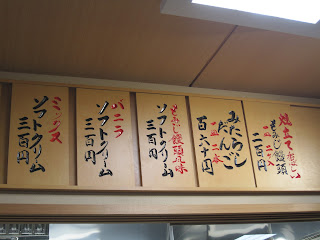 炊立て
もみじ饅頭
一皿 二ヶ入
二百円
みたらし
だんご
一皿 二本
百六十円
もみじ饅頭風味
ソフトクリーム
三百円
バニラ
ソフトクリーム
三百円
ミックス
ソフトクリーム
三百円